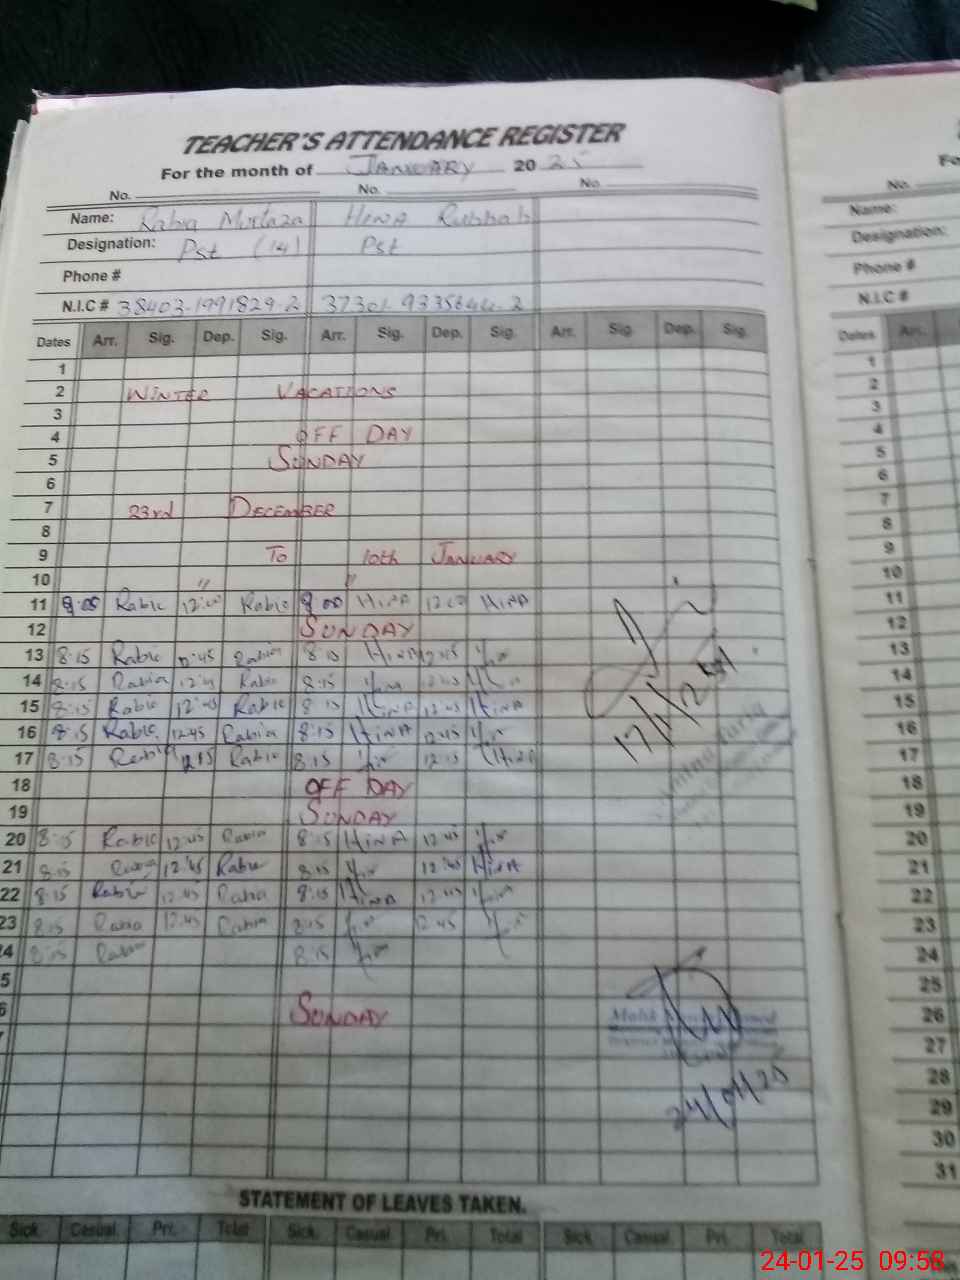 TEACHER'S ATTENDANCE REGISTER
For the month of JANUARY 2025
No. No. No.
Name: Rabia Murtaza HINA Rubbab
Designation: Pst (14) Pst
Phone #
N.I.C # 38403-1991829-2 37301-9335644-2
Dates Arr. Sig. Dep. Sig. Arr. Sig. Dep. Sig. Arr. Sig. Dep. Sig.
1
2 WINTER VACATIONS
3
4 OFF DAY
5 SUNDAY
6
7 23rd DECEMBER
8
9 To 10th JANUARY
10
11 9:00 Rabia 12:00 Rabia 9:00 HINA 12:00 HINA
12 SUNDAY
13 8:15 Rabia 12:45 Rabia 8:15 HINA 12:45
14 8:15 Rabia 12:45 Rabia 8:15 12:45
15 8:15 Rabia 12:45 Rabia 8:15 HINA 12:45 HINA
16 8:15 Rabia 12:45 Rabia 8:15 HINA 12:45
17 8:15 Rabia 12:15 Rabia 8:15 12:15
17/1/25
18 OFF DAY
19 SUNDAY
20 8:15 Rabia 12:45 Rabia 8:15 HINA 12:45
21 8:15 Rabia 12:45 Rabia 8:15 12:45 HINA
22 8:15 Rabia 12:45 Rabia 8:15 HINA 12:45
23 8:15 Rabia 12:45 Rabia 8:15 12:45
24 8:15 Rabia 8:15
SUNDAY
24/01/25
STATEMENT OF LEAVES TAKEN.
Sick. Casual. Pri. Total Sick. Casual. Pri. Total Sick. Casual. Pri. Total
No.
Name:
Designation:
Phone #
N.I.C #
Dates Arr.
1
2
3
4
5
6
7
8
9
10
11
12
13
14
15
16
17
18
19
20
21
22
23
24
25
26
27
28
29
30
31
24-01-25 09:58